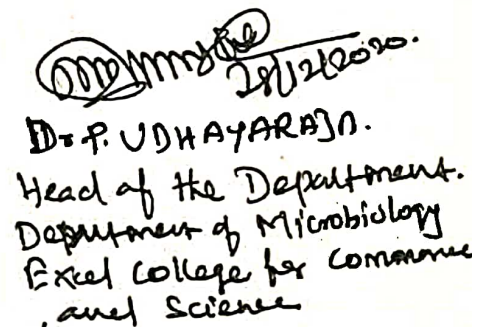 28/12/2020.
Dr. P. UDHAYARAJA.
Head of the Department.
Department of Microbiology
Excel College for Commerce
and Science